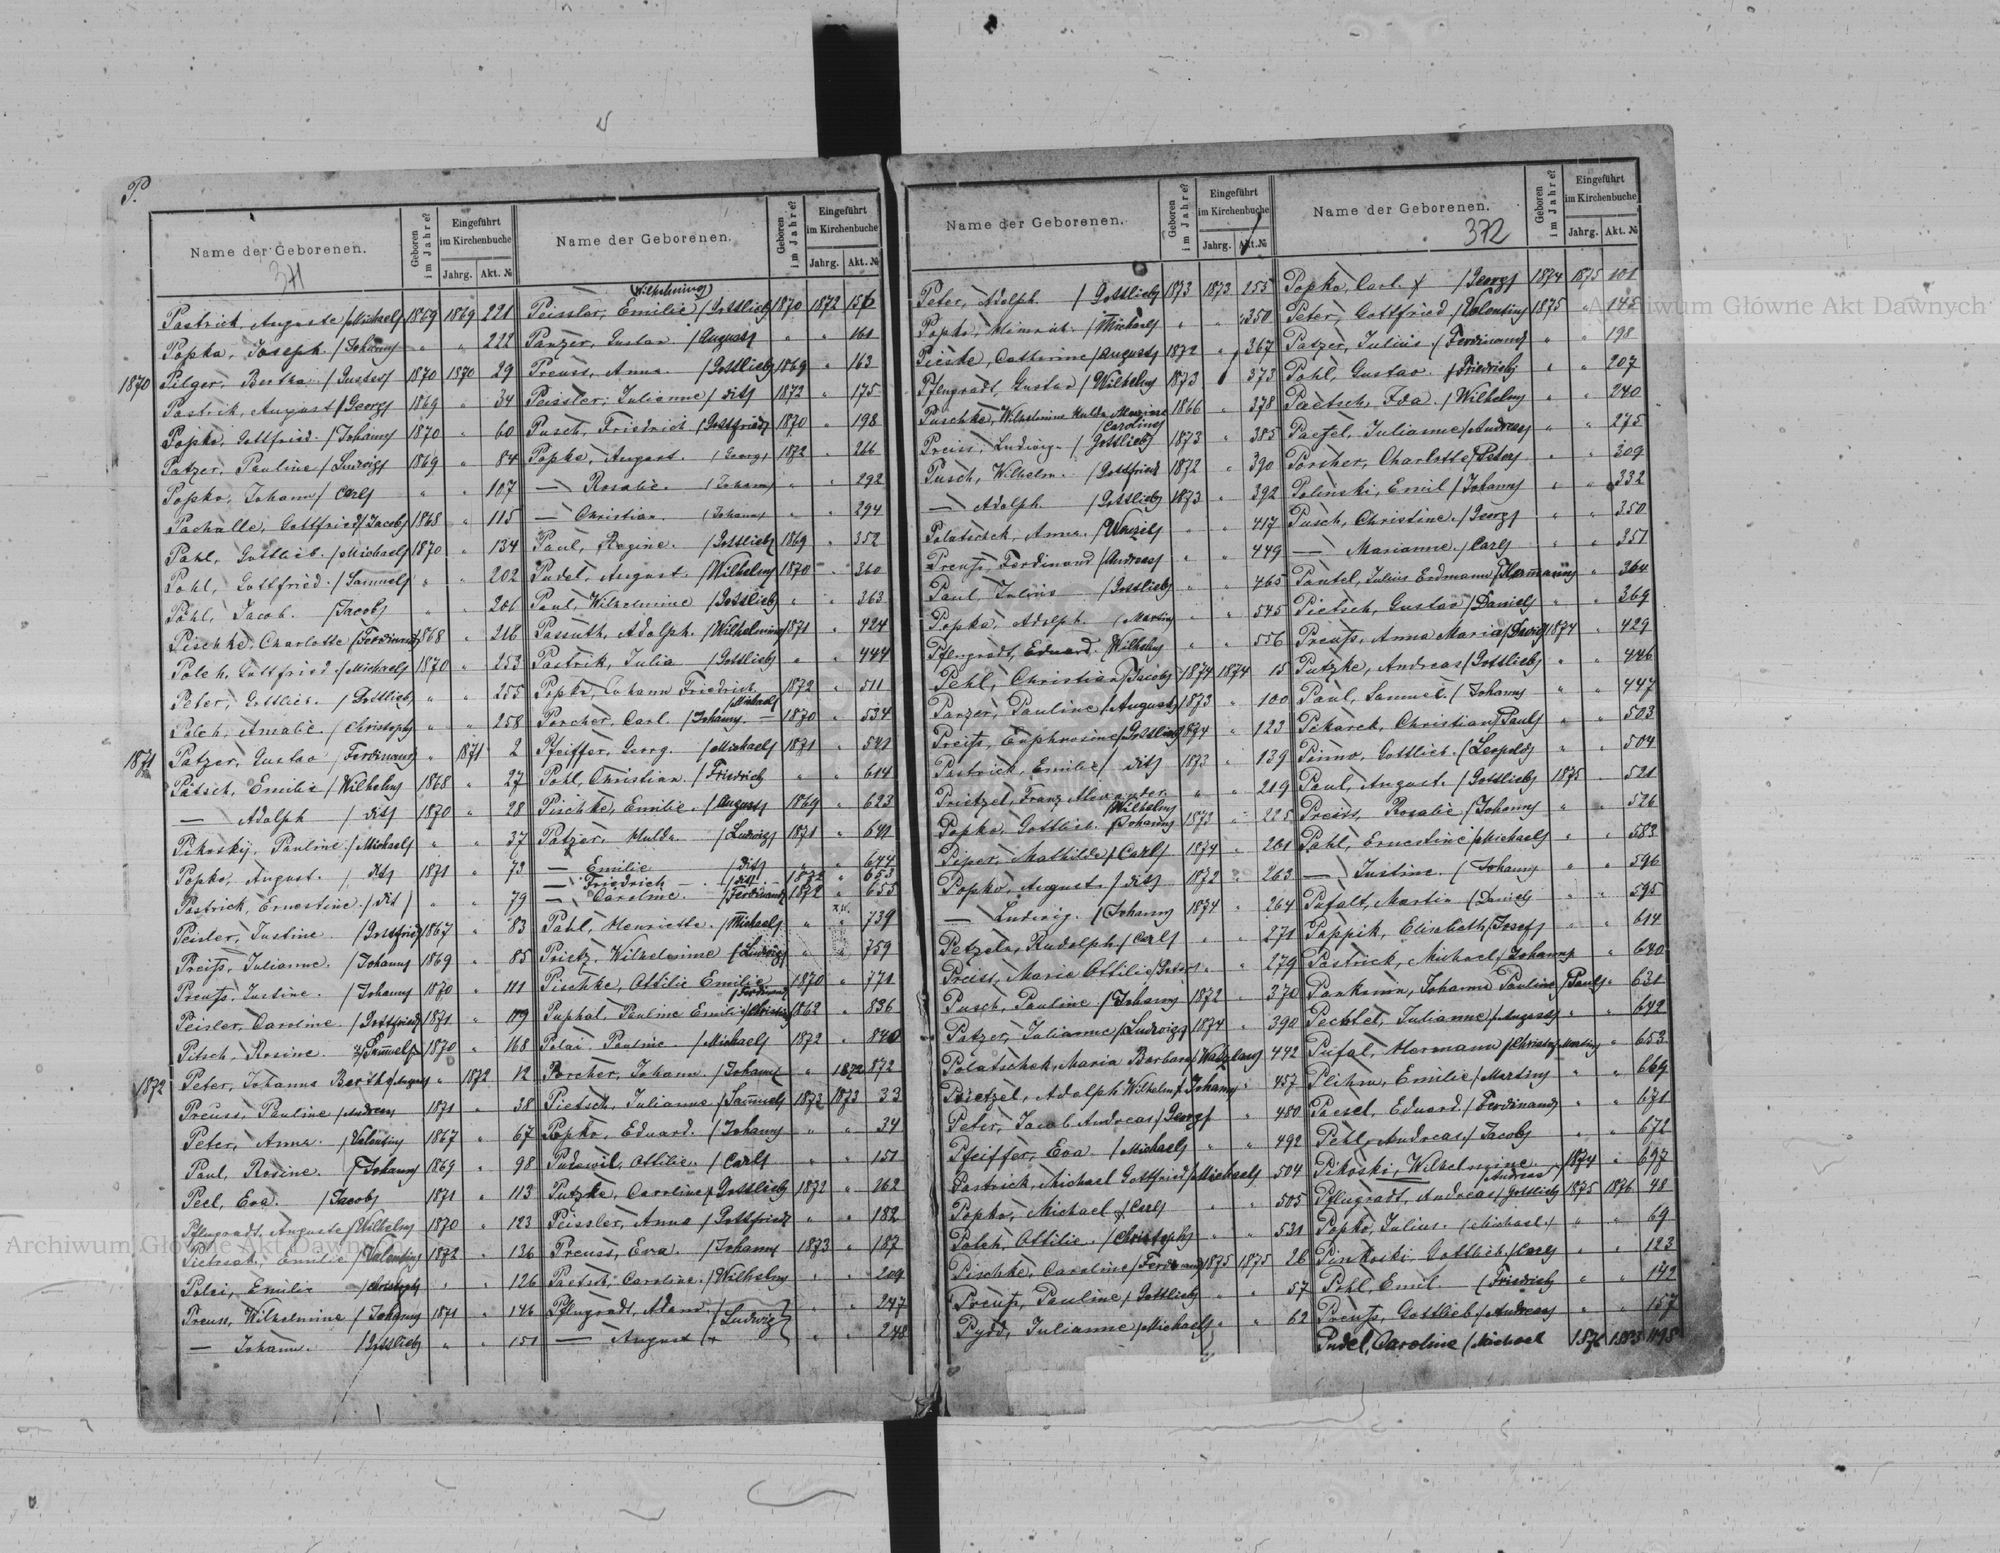 P.
Name der Geborenen.
371
Geboren im Jahre?
Eingeführt im Kirchenbuche
Jahrg. Akt. №
Pastrick, Auguste /Michael/ 1869 1869 221
Popko, Joseph /Johann/ " " 222
1870 Pilger, Bertha /Gustav/ 1870 1870 29
Pastrik, August /Georg/ 1869 " 34
Popko, Gottfried /Johann/ 1870 " 60
Patzer, Pauline /Ludwig/ 1869 " 84
Popko, Johann /Carl/ " " 107
Pachalle, Gottfried /Jacob/ 1868 " 115
Pahl, Gottlieb /Michael/ 1870 " 134
Pohl, Gottfried /Samuel/ " " 202
Pohl, Jacob /Jacob/ " " 206
Pischke, Charlotte /Ferdinand/ 1868 " 218
Polch, Gottfried /Michael/ 1870 " 253
Peter, Gottlieb /Gottlieb/ " " 255
Polch, Amalie /Christoph/ " " 258
1871 Patzer, Gustav /Ferdinand/ " 1871 2
Pätsch, Emilie /Wilhelm/ 1868 " 27
— Adolph /dit/ 1870 " 28
Pikosky, Pauline /Michael/ " " 37
Popko, August /dit/ 1871 " 73
Pastrick, Ernestine /dit/ " " 79
Peisler, Justine /Gottfried/ 1867 " 83
Preiss, Julianne /Johann/ 1869 " 85
Preuss, Justine /Johann/ 1870 " 111
Peisler, Caroline /Gottfried/ 1871 " 119
Pitsch, Rosine /Samuel/ 1870 " 168
1872 Peter, Johanna Bertha /August/ " 1872 12
Preuss, Pauline /Andreas/ 1871 " 38
Peter, Anna /Valentin/ 1867 " 67
Paul, Rosine /Johann/ 1869 " 98
Peel, Eva /Jacob/ 1871 " 113
Pflugradt, Auguste /Wilhelm/ 1870 " 123
Emilie /Valentin/ 1872 " 136
Polei, Emilie /Christoph/ " " 126
Preuss, Wilhelmine /Johann/ 1871 " 146
— Johann /Gottlieb/ " " 151
Name der Geborenen.
Geboren im Jahre?
Eingeführt im Kirchenbuche
Jahrg. Akt. №
(Wilhelmine)
Peissler, Emilie /Gottlieb/ 1870 1872 156
Panzer, Gustav /August/ " " 161
Preuss, Anna /Gottlieb/ 1869 " 163
Peissler, Julianne /dit/ 1872 " 175
Pusch, Friedrich /Gottfried/ 1870 " 198
Popko, August /Georg/ 1872 " 266
— Rosalie /Johann/ " " 292
— Christian /Johann/ " " 294
Paul, Regine /Gottlieb/ 1869 " 352
Pudel, August /Wilhelm/ 1870 " 360
Paul, Wilhelmine /Gottlieb/ " " 363
Passuth, Adolph /Wilhelmine/ 1871 " 424
Pastrik, Julia /Gottlieb/ " " 444
Popko, Johann Friedrich /Michael/ 1872 " 511
Porcher, Carl /Johann/ 1870 " 534
Pfeiffer, Georg /Michael/ 1871 " 541
Pohl, Christian /Friedrich/ " " 614
Pischke, Emilie /August/ 1869 " 623
Patzer, Hulda /Ludwig/ 1871 " 641
— Emilie /dit/ " " 644
— Friedrich /dit/ 1872 " 653
— Caroline /Ferdinand/ 1872 " 655
Pahl, Henriette /Michael/ " " 739
Prietz, Wilhelmine /Ludwig/ " " 759
Pischke, Ottilie Emilie /Ferdinand/ 1870 " 771
Puphal, Pauline Emilie /Christian/ 1862 " 836
Polai, Pauline /Michael/ 1872 " 840
Porcher, Johann /Johann/ " 1872 872
Pietsch, Julianne /Samuel/ 1872 1873 33
Popko, Eduard /Johann/ " " 34
Pudewil, Ottilie /Carl/ " " 151
Putzke, Caroline /Gottlieb/ 1872 " 162
Peissler, Anna /Gottfried/ " " 182
Preuss, Eva /Johann/ 1873 " 187
Paetsch, Caroline /Wilhelm/ " " 209
Pflugradt, Adam /Ludwig/ " " 247
— August " " 248
Name der Geborenen.
Geboren im Jahre?
Eingeführt im Kirchenbuche
Jahrg. Akt. №
Peter, Adolph /Gottlieb/ 1873 1873 255
Popko, Heinrich /Michael/ " " 350
Pieske, Catherine /August/ 1872 " 367
Pflugradt, Gustav /Wilhelm/ 1873 " 373
Puschke, Wilhelmine Hulda Mariane /Caroline/ 1866 " 378
Preiss, Ludwig /Gottlieb/ 1873 " 385
Pusch, Wilhelm /Gottfried/ 1872 " 390
— Adolph /Gottlieb/ 1873 " 392
Polatschek, Anna /Wenzel/ " " 417
Preuss, Ferdinand /Andreas/ " " 449
Paul, Julius /Gottlieb/ " " 465
Popko, Adolph /Martin/ " " 545
Pflugradt, Eduard /Wilhelm/ " " 556
Pehl, Christian /Jacob/ 1874 1874 15
Panzer, Pauline /August/ 1873 " 100
Preiss, Euphrosine /Gottlieb/ 1874 " 123
Pastrick, Emilie /dit/ 1873 " 139
Prietzel, Franz Alexander /Wilhelm/ " " 219
Popko, Gottlieb /Johann/ 1873 " 225
Piper, Mathilde /Carl/ 1874 " 261
Popko, August /dit/ 1872 " 263
— Ludwig /Johann/ 1874 " 264
Petzeln, Rudolph /Carl/ " " 271
Preiss, Marie Ottilie /Peter/ " " 279
Pusch, Pauline /Johann/ 1872 " 370
Patzer, Julianne /Ludwig/ 1874 " 390
Polatschek, Maria Barbara /Wadzlaw/ 442
Prietzel, Adolph Wilhelm /Johann/ " 457
Peter, Jacob Andreas /Georg/ " 480
Pfeiffer, Eva /Michael/ " " 492
Pastrick, Michael Gottfried /Michael/ 504
Popko, Michael /Carl/ " " 505
Polch, Ottilie /Christoph/ " " 531
Pischke, Caroline /Ferdinand/ 1875 1875 26
Preuss, Pauline /Gottlieb/ " " 57
Pydd, Julianne /Michael/ " " 62
Name der Geborenen.
372
Geboren im Jahre?
Eingeführt im Kirchenbuche
Jahrg. Akt. №
Popko, Carl /Georg/ 1874 1875 101
Peter, Gottfried /Valentin/ 1875 " 145
Patzer, Julius /Ferdinand/ " " 198
Pohl, Gustav /Friedrich/ " " 207
Paetsch, Ida /Wilhelm/ " " 240
Paetzel, Julianne /Andreas/ " " 275
Porcher, Charlotte /Peter/ " " 309
Polinski, Emil /Johann/ " " 332
Pusch, Christine /Georg/ " " 350
— Marianne /Carl/ " " 351
Pantel, Julius Erdmann /Hermann/ " 364
Pietsch, Gustav /Daniel/ " " 369
Preuss, Anna Maria /David/ 1874 " 429
Putzke, Andreas /Gottlieb/ " " 446
Paul, Samuel /Johann/ " " 447
Pekarek, Christian /Paul/ " " 503
Pinno, Gottlieb /Leopold/ " " 504
Paul, August /Gottlieb/ 1875 " 521
Preiss, Rosalie /Johann/ " " 526
Pahl, Ernestine /Michael/ " " 583
— Justine /Johann/ " " 596
Pufalt, Martin /Daniel/ " " 595
Poppik, Elisabeth /Josef/ " " 614
Pastrick, Michael /Johann/ " 620
Pankonin, Johanna Pauline /Paul/ " 631
Pechtel, Julianne /August/ " " 642
Pufal, Hermann /Christof Martin/ " " 653
Plihm, Emilie /Martin/ " " 669
Paesel, Eduard /Ferdinand/ " " 671
Pehl, Andreas /Jacob/ " " 672
Pikoski, Wilhelmine /Andreas/ 1874 " 697
Pflugradt, Andreas /Gottlieb/ 1875 1876 48
Popko, Julius /Michael/ " " 69
Pinkoski, Gottlieb /Carl/ " " 123
Pohl, Emil /Friedrich/ " " 142
Preuss, Gottlieb /Andreas/ " " 157
Pudel, Caroline /Michael 1876 1885 1198
Archiwum Główne Akt Dawnych
Archiwum Główne Akt Dawnych